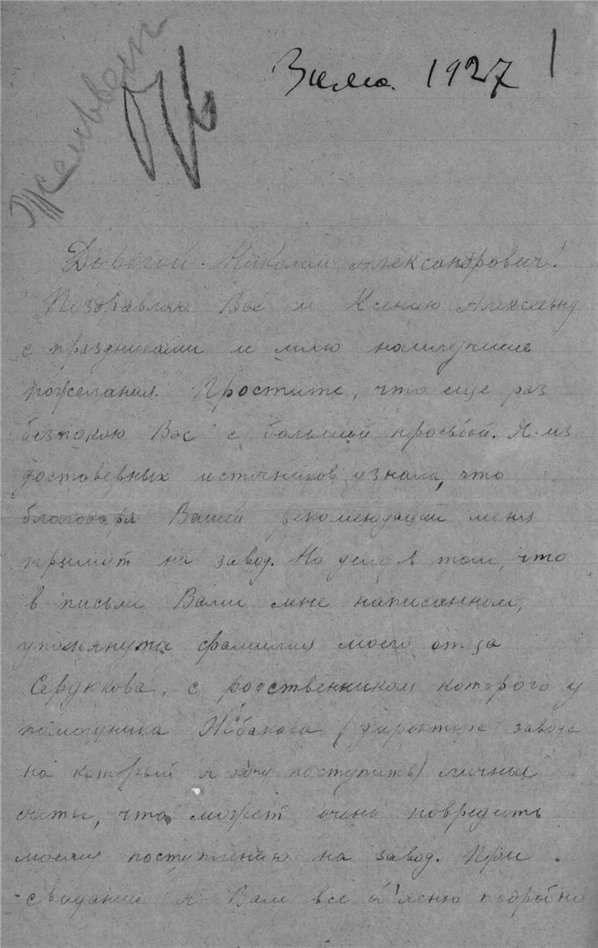 Зима 1927
Дорогой Николай Александрович!
Поздравляю Вас и Ксению Алексанну
с праздниками и шлю наилучшие
пожелания. Простите, что еще раз
безпокою Вас с большой просьбой. Я из
достоверных источников узнала, что
благодаря Вашей рекомендации меня
примут на завод. Но дело в том, что
в письме Вами мне написанном,
упомянута фамилия моего отца
Сердюкова, с родственником которого у
помощника (директора завода
на который я хочу поступить) личные
счеты, что может очень повредить
моему поступлению на завод. При
свидании я Вам все об'ясню подробно